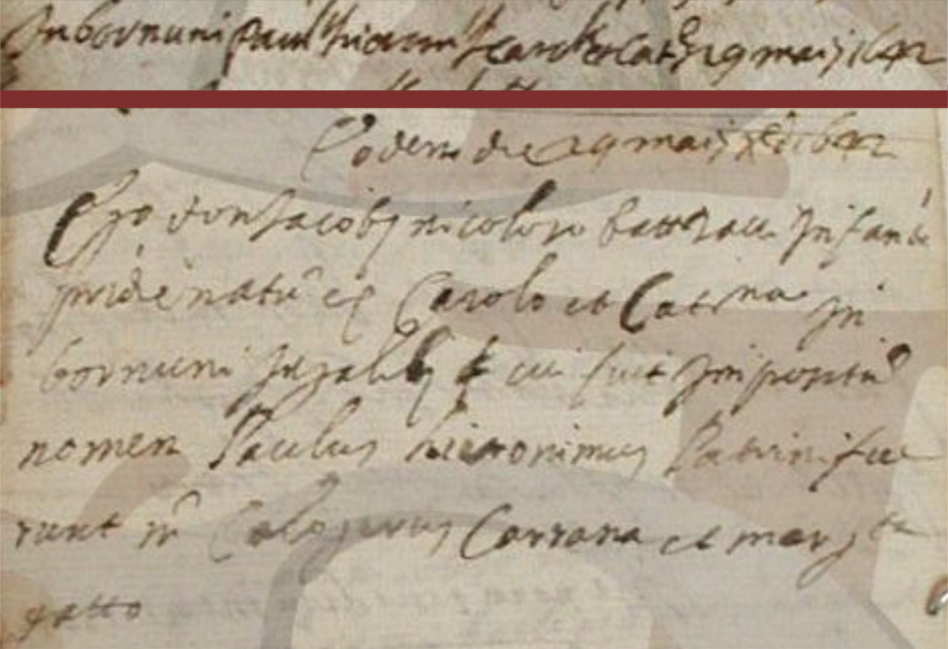 Inbornuni Paul hieronimi Caroli et Cat 29 maij 1642
Eodem die 29 maij 1642
Ego Don Jacobus nicoloso battizaui Infante
pridie natu ex Carolo et Catrina In
bornuni Jugalibus cui fuit Impositu
nomen Paulus hieronimus Patrini fue
runt Calogerus Carrana et marg
gatto